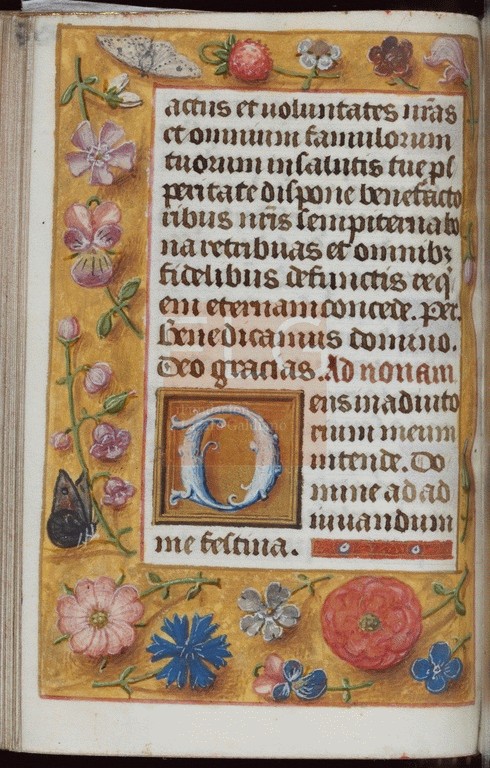 actus et uoluntates nr̃as
et omnium famulorum
tuorum in salutis tue ꝓſ
peritate dispone benefacto
ribus nr̃is sempiterna bo
na retribuas et omnibꝫ
fidelibus defunctis requi
em eternam concede. Per.
Benedicamus domino.
Deo gracias. Ad nonam
Deus in adiuto
rium meum
intende. Do
mine ad ad
iuuandum
me festina.